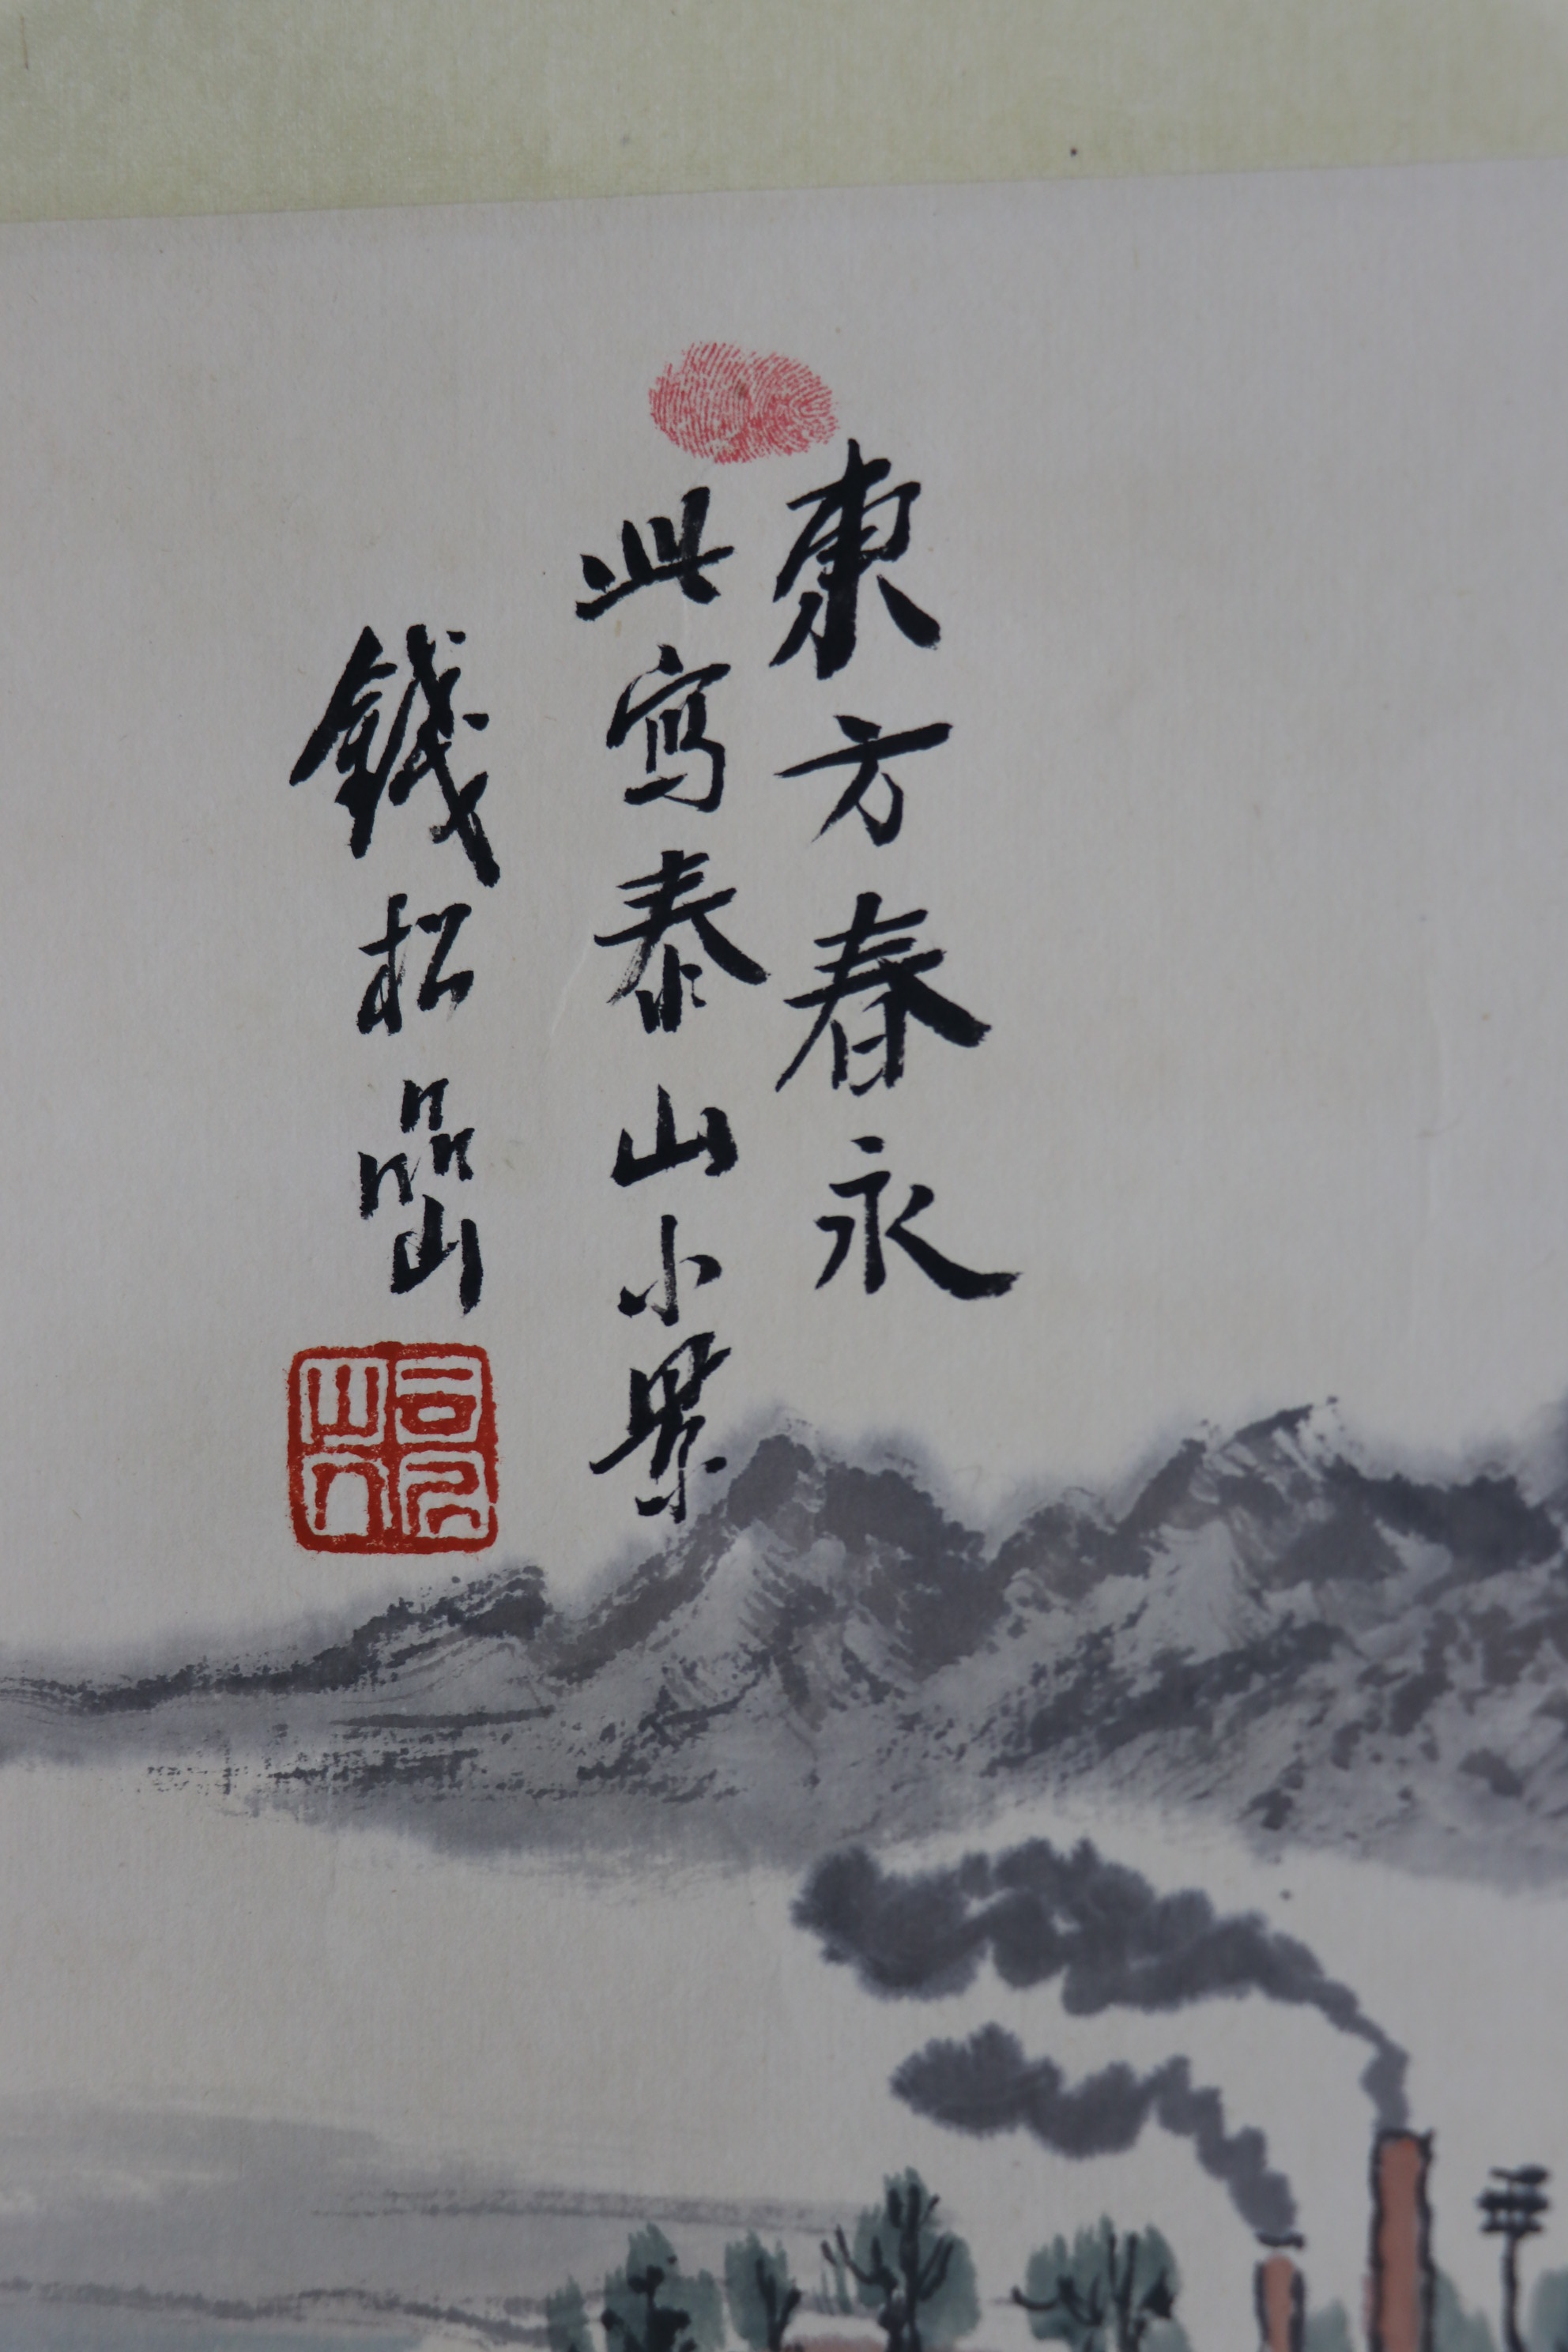 東方春永
此寫泰山小景
錢松嵒